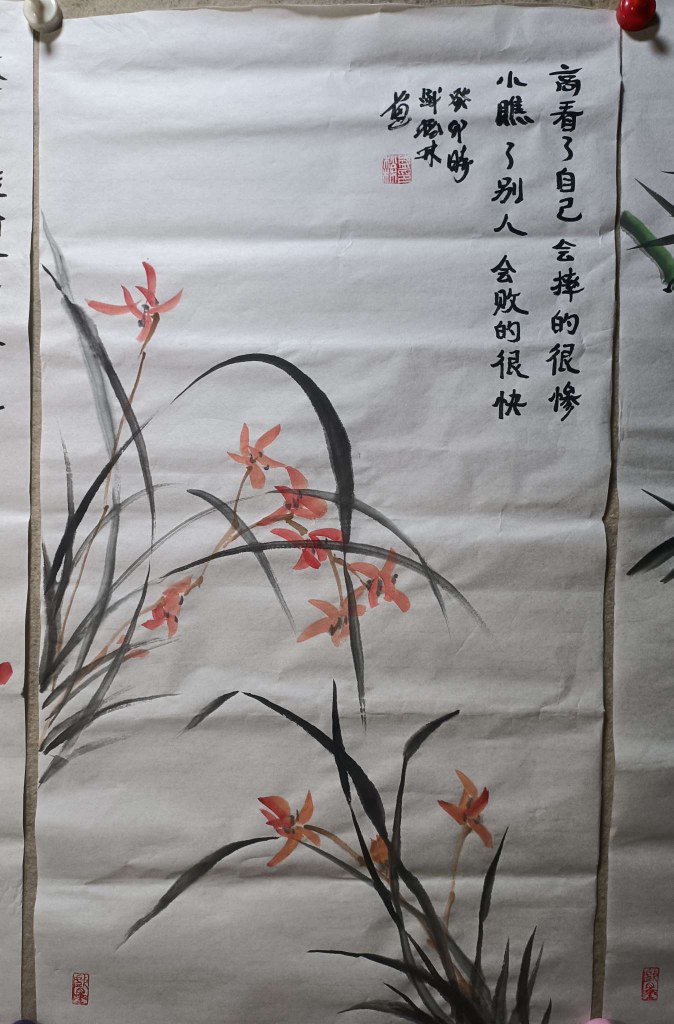 高看了自己会摔的很惨
小瞧了别人会败的很快
癸卯時